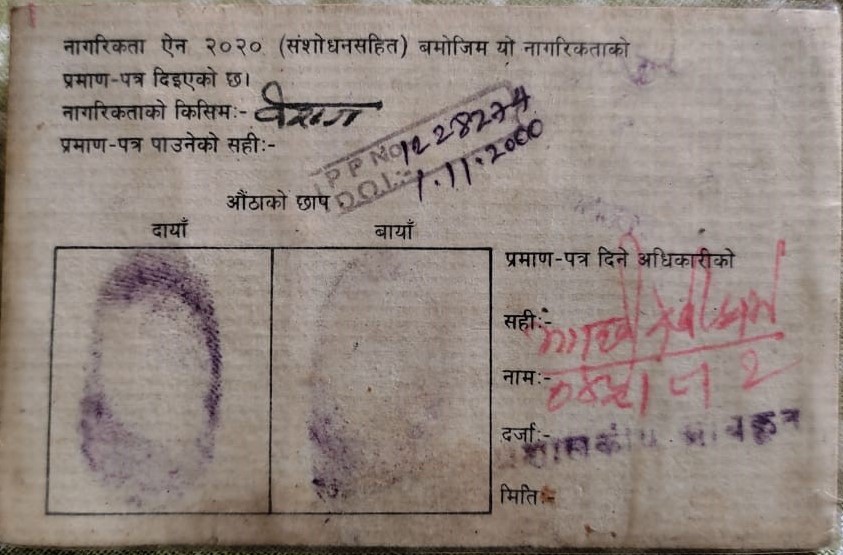 नागरिकता ऐन २०२० (संशोधनसहित) बमोजिम यो नागरिकताको
प्रमाण-पत्र दिइएको छ।
नागरिकताको किसिम:- वंशज
प्रमाण-पत्र पाउनेको सही:-
PP NO 1228274
DOI:- 1.11.2000
औंठाको छाप
दायाँ
बायाँ
प्रमाण-पत्र दिने अधिकारीको
सही:-
नाम:-
दर्जा:-
मिति:-